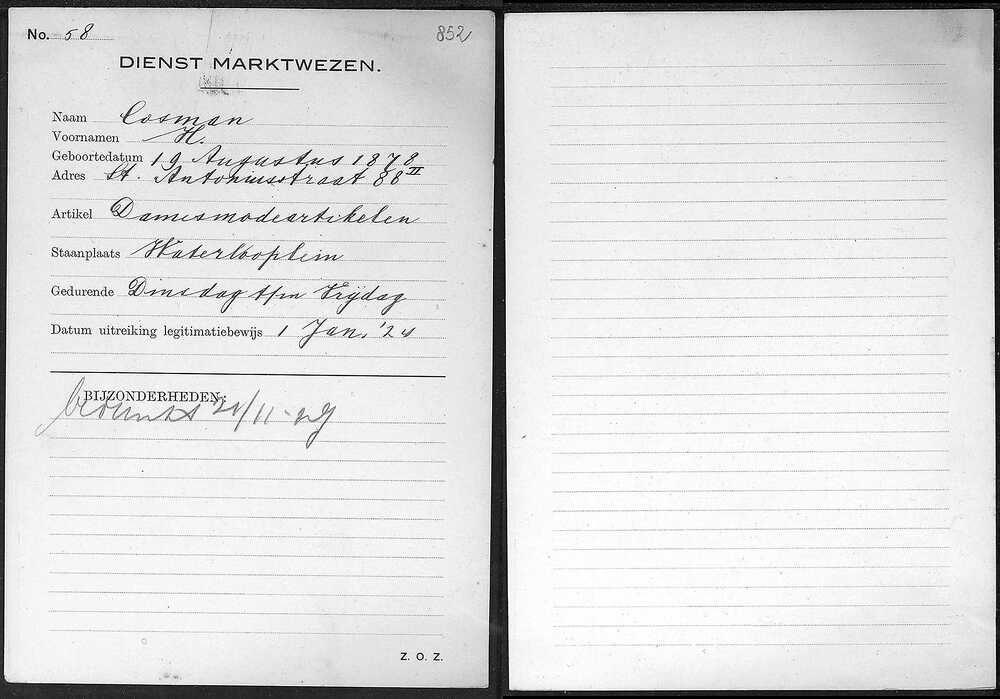 No. 58 852
DIENST MARKTWEZEN.
Naam Cosman
Voornamen H.
Geboortedatum 19 Augustus 1878
Adres St. Antoniusstraat 88 II
Artikel Damesmodeartikelen
Staanplaats Waterlooplein
Gedurende Dinsdag t/m Vrijdag
Datum uitreiking legitimatiebewijs 1 Jan. '24
BIJZONDERHEDEN:
Z. O. Z.